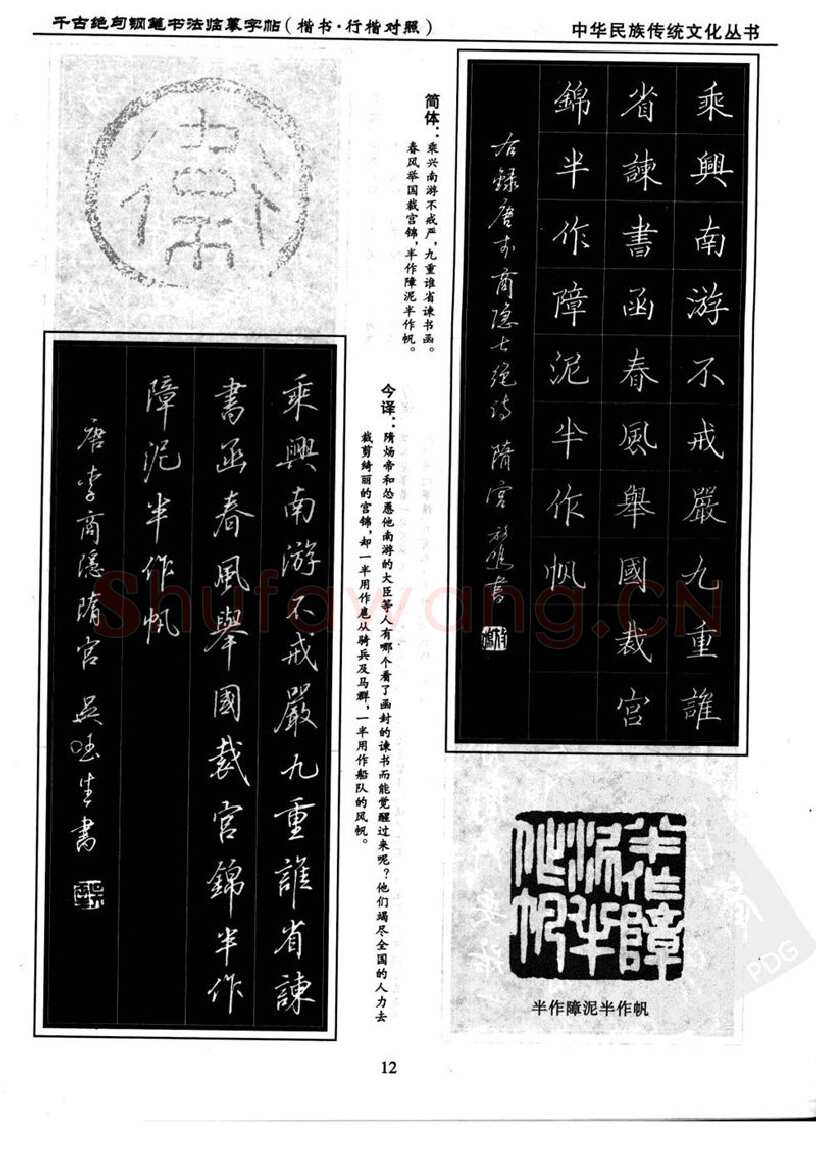 千古绝句钢笔书法临摹字帖(楷书·行楷对照)
中华民族传统文化丛书
乘興南游不戒嚴九重誰
省諫書函春風舉國裁宮
錦半作障泥半作帆
右録唐李商隐七绝诗隋宫
書
简体:乘兴南游不戒严,九重谁省谏书函。
春风举国裁宫锦,半作障泥半作帆。
今译:隋炀帝和怂恿他南游的大臣等人有哪个看了函封的谏书而能觉醒过来呢?他们竭尽全国的人力去
裁剪绮丽的宫锦,却一半用作扈从骑兵及马群,一半用作船队的风帆。
乘興南游不戒嚴九重誰省諫
書函春風舉國裁宮錦半作
障泥半作帆
唐李商隱隋宫 吴 生書
半作障泥半作帆
半作障泥半作帆
12
Shufawang.CN
PDG